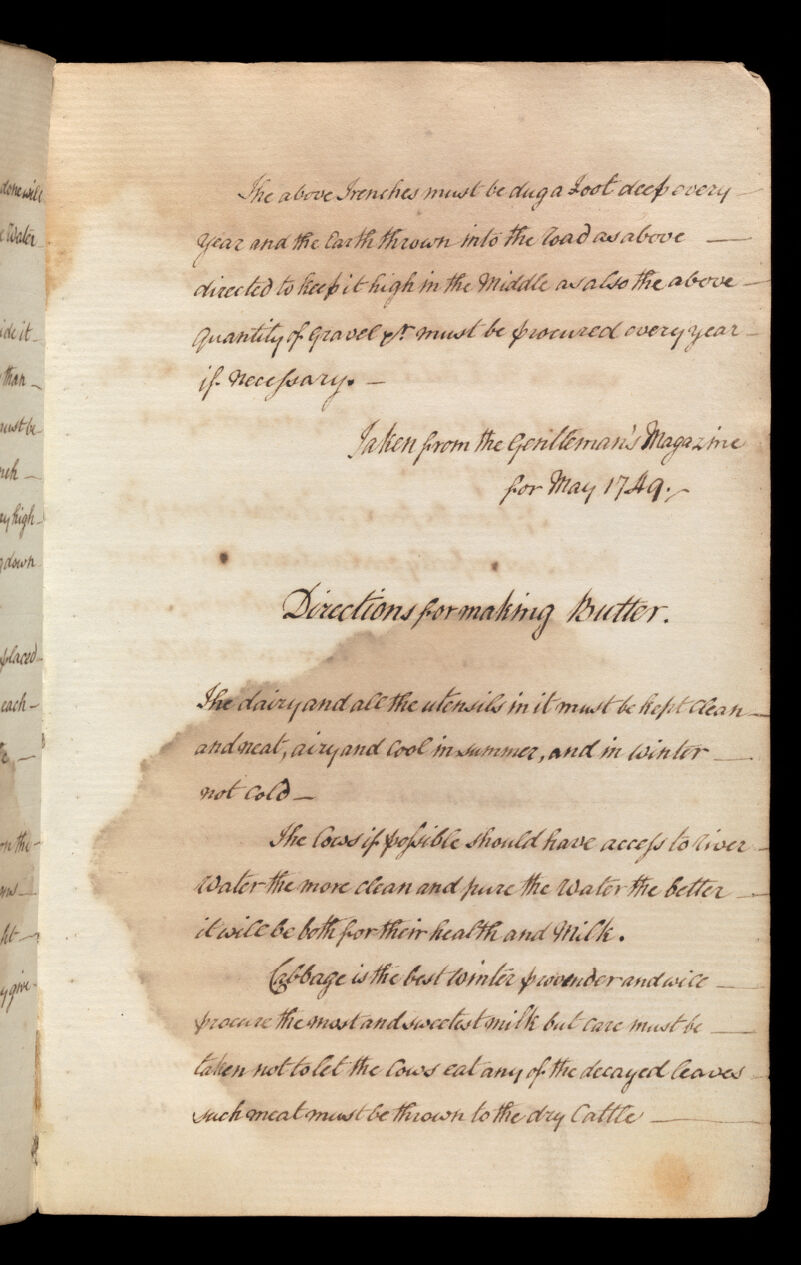 The above Trenches must be dug a Foot deep every —
Year and the Earth thrown into the Road as above —
directed to keep it high in the Middle as also the above —
Quantity of Gravel &c must be procured every year —
if necessary. —
Taken from the Gentleman's Magazine
for May 1749. —
Directions for making Butter.
The dairy and all the utensils in it must be kept clean —
and neat, airy and Cool in summer, and in Winter —
not Cold —
The Cows if possible should have access to River —
Water the more clean and pure the Water the better —
it will be both for their health and Milk.
Cabbage is the best Winter provender and will —
procure the most and sweetest milk but Care must be —
taken not to let the Cows eat any of the decayed leaves
such meat must be thrown to the dry Cattle —
done will
Water
ide it —
than —
must be —
high —
down
placed —
each —
on the —
give